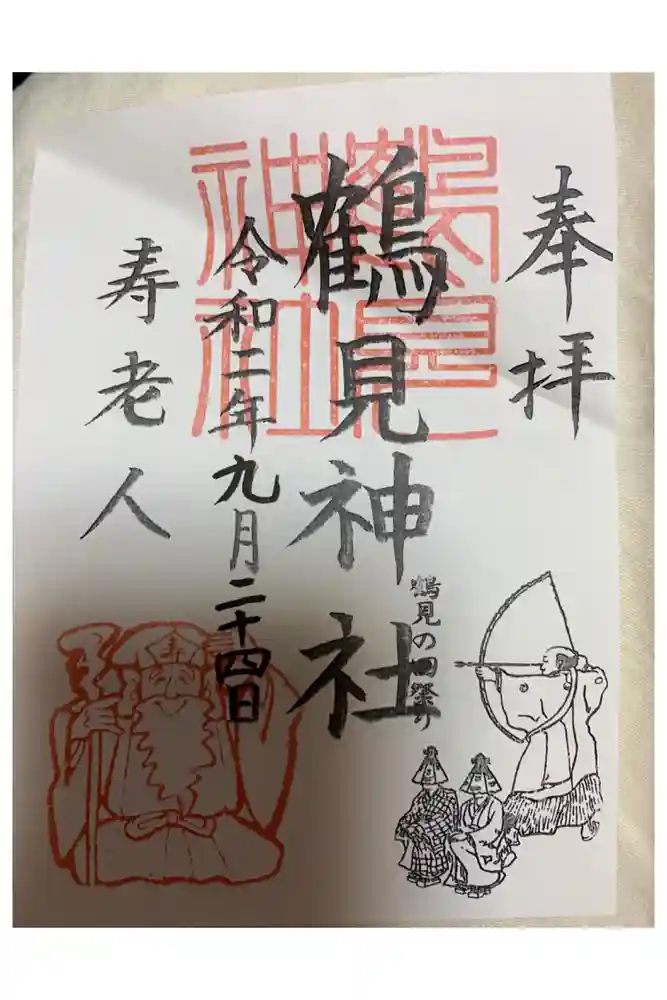 奉拝
鶴見神社
鶴見の田祭り
令和二年九月二十四日
寿老人
鶴見神社
寿